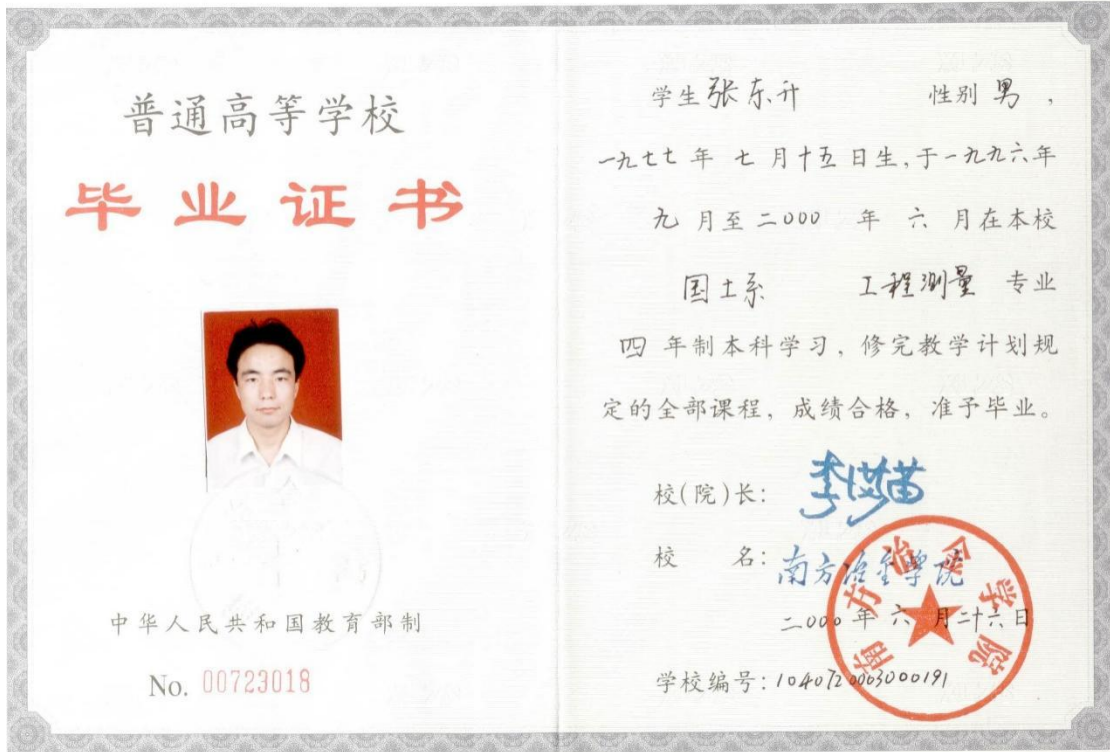 普通高等学校
毕业证书
中华人民共和国教育部制
No. 00723018
学生张东升 性别 男，
一九七七 年 七 月十五 日生，于一九九六年
九 月至 二000 年 六 月在本校
国土系 工程测量 专业
四 年制本科学习，修完教学计划规
定的全部课程，成绩合格，准予毕业。
校(院)长：
校 名：南方冶金学院
二000 年 六 月二十六日
南方冶金学院
学校编号：1040720003000191